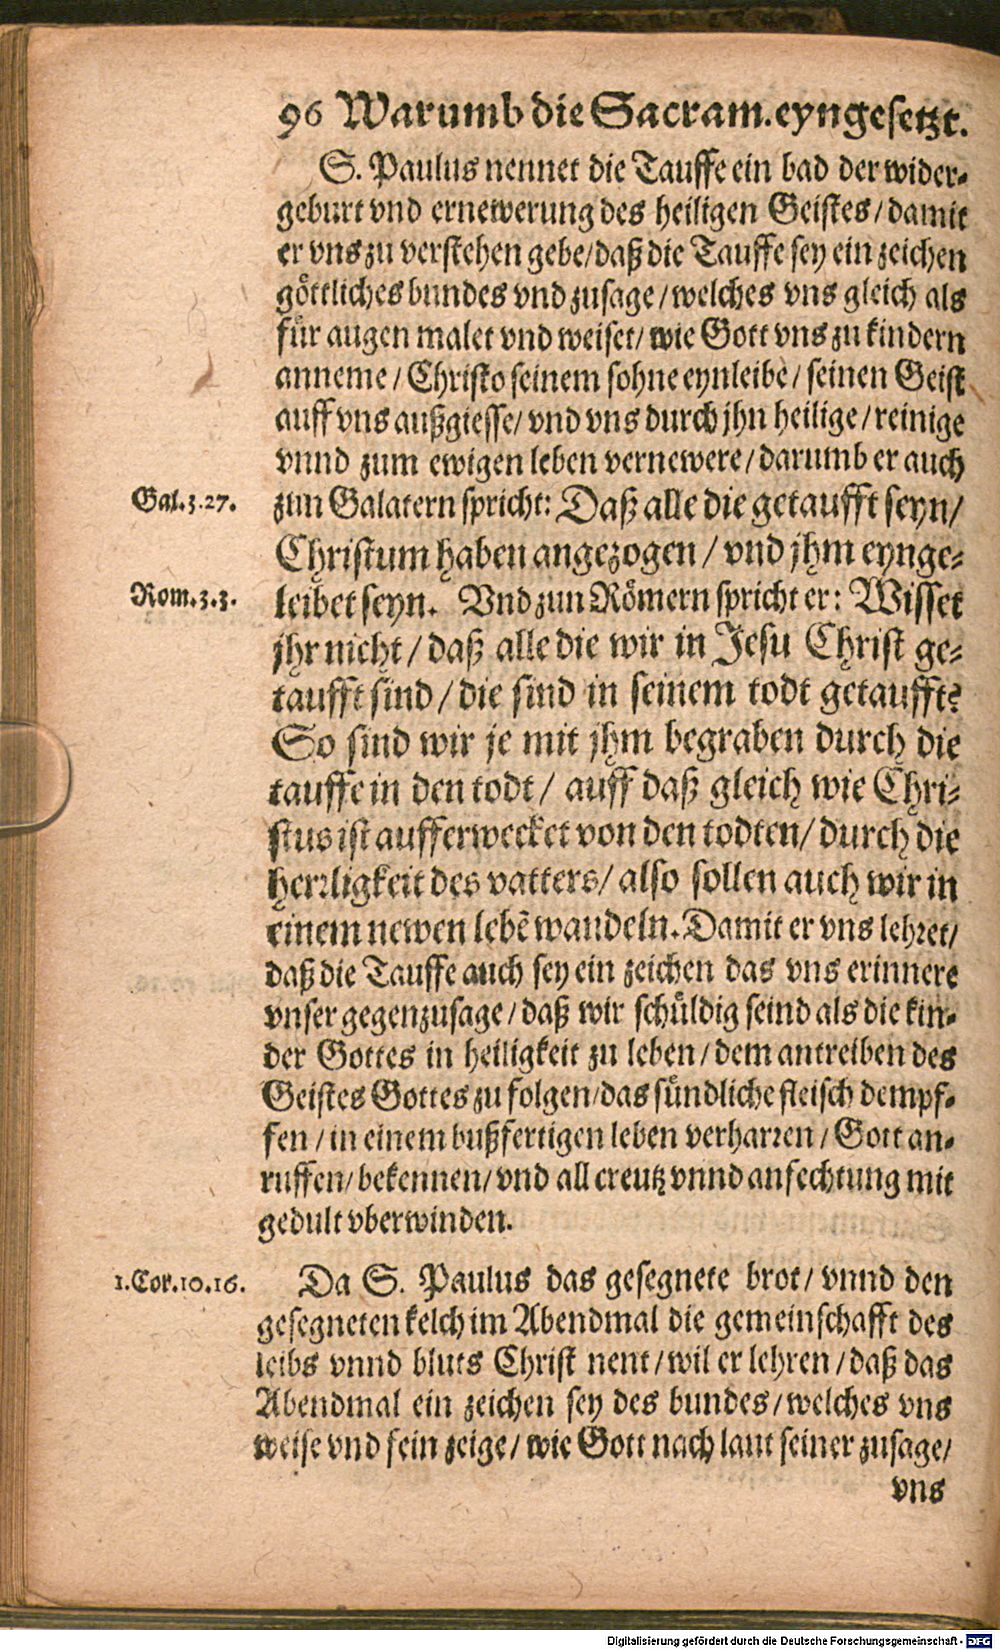 96 Warumb die Sacram. eyngesetzt.
S. Paulus nennet die Tauffe ein bad der wider-
geburt vnd ernewerung des heiligen Geistes/ damit
er vns zu verstehen gebe/ daß die Tauffe sey ein zeichen
göttliches bundes vnd zusage/ welches vns gleich als
für augen malet vnd weiset/ wie Gott vns zu kindern
anneme/ Christo seinem sohne eynleibe/ seinen Geist
auff vns außgiesse/ vnd vns durch jhn heilige/ reinige
vnnd zum ewigen leben vernewere/ darumb er auch
Gal.3.27. zun Galatern spricht: Daß alle die getaufft seyn/
Christum haben angezogen/ vnd jhm eynge-
Rom.3.3. leibet seyn. Vnd zun Römern spricht er: Wisset
jhr nicht/ daß alle die wir in Jesu Christ ge-
taufft sind/ die sind in seinem todt getaufft?
So sind wir je mit jhm begraben durch die
tauffe in den todt/ auff daß gleich wie Chri-
stus ist aufferwecket von den todten/ durch die
herrligkeit des vatters/ also sollen auch wir in
einem newen lebẽ wandeln. Damit er vns lehret/
daß die Tauffe auch sey ein zeichen das vns erinnere
vnser gegenzusage/ daß wir schüldig seind als die kin-
der Gottes in heiligkeit zu leben/ dem antreiben des
Geistes Gottes zu folgen/ das sündliche fleisch dempf-
fen/ in einem bußfertigen leben verharren/ Gott an-
ruffen/ bekennen/ vnd all creutz vnnd anfechtung mit
gedult vberwinden.
1.Cor.10.16. Da S. Paulus das gesegnete brot/ vnnd den
gesegneten kelch im Abendmal die gemeinschafft des
leibs vnnd bluts Christ nent/ wil er lehren/ daß das
Abendmal ein zeichen sey des bundes/ welches vns
weise vnd fein zeige/ wie Gott nach laut seiner zusage/
vns
Digitalisierung gefördert durch die Deutsche Forschungsgemeinschaft - DFG